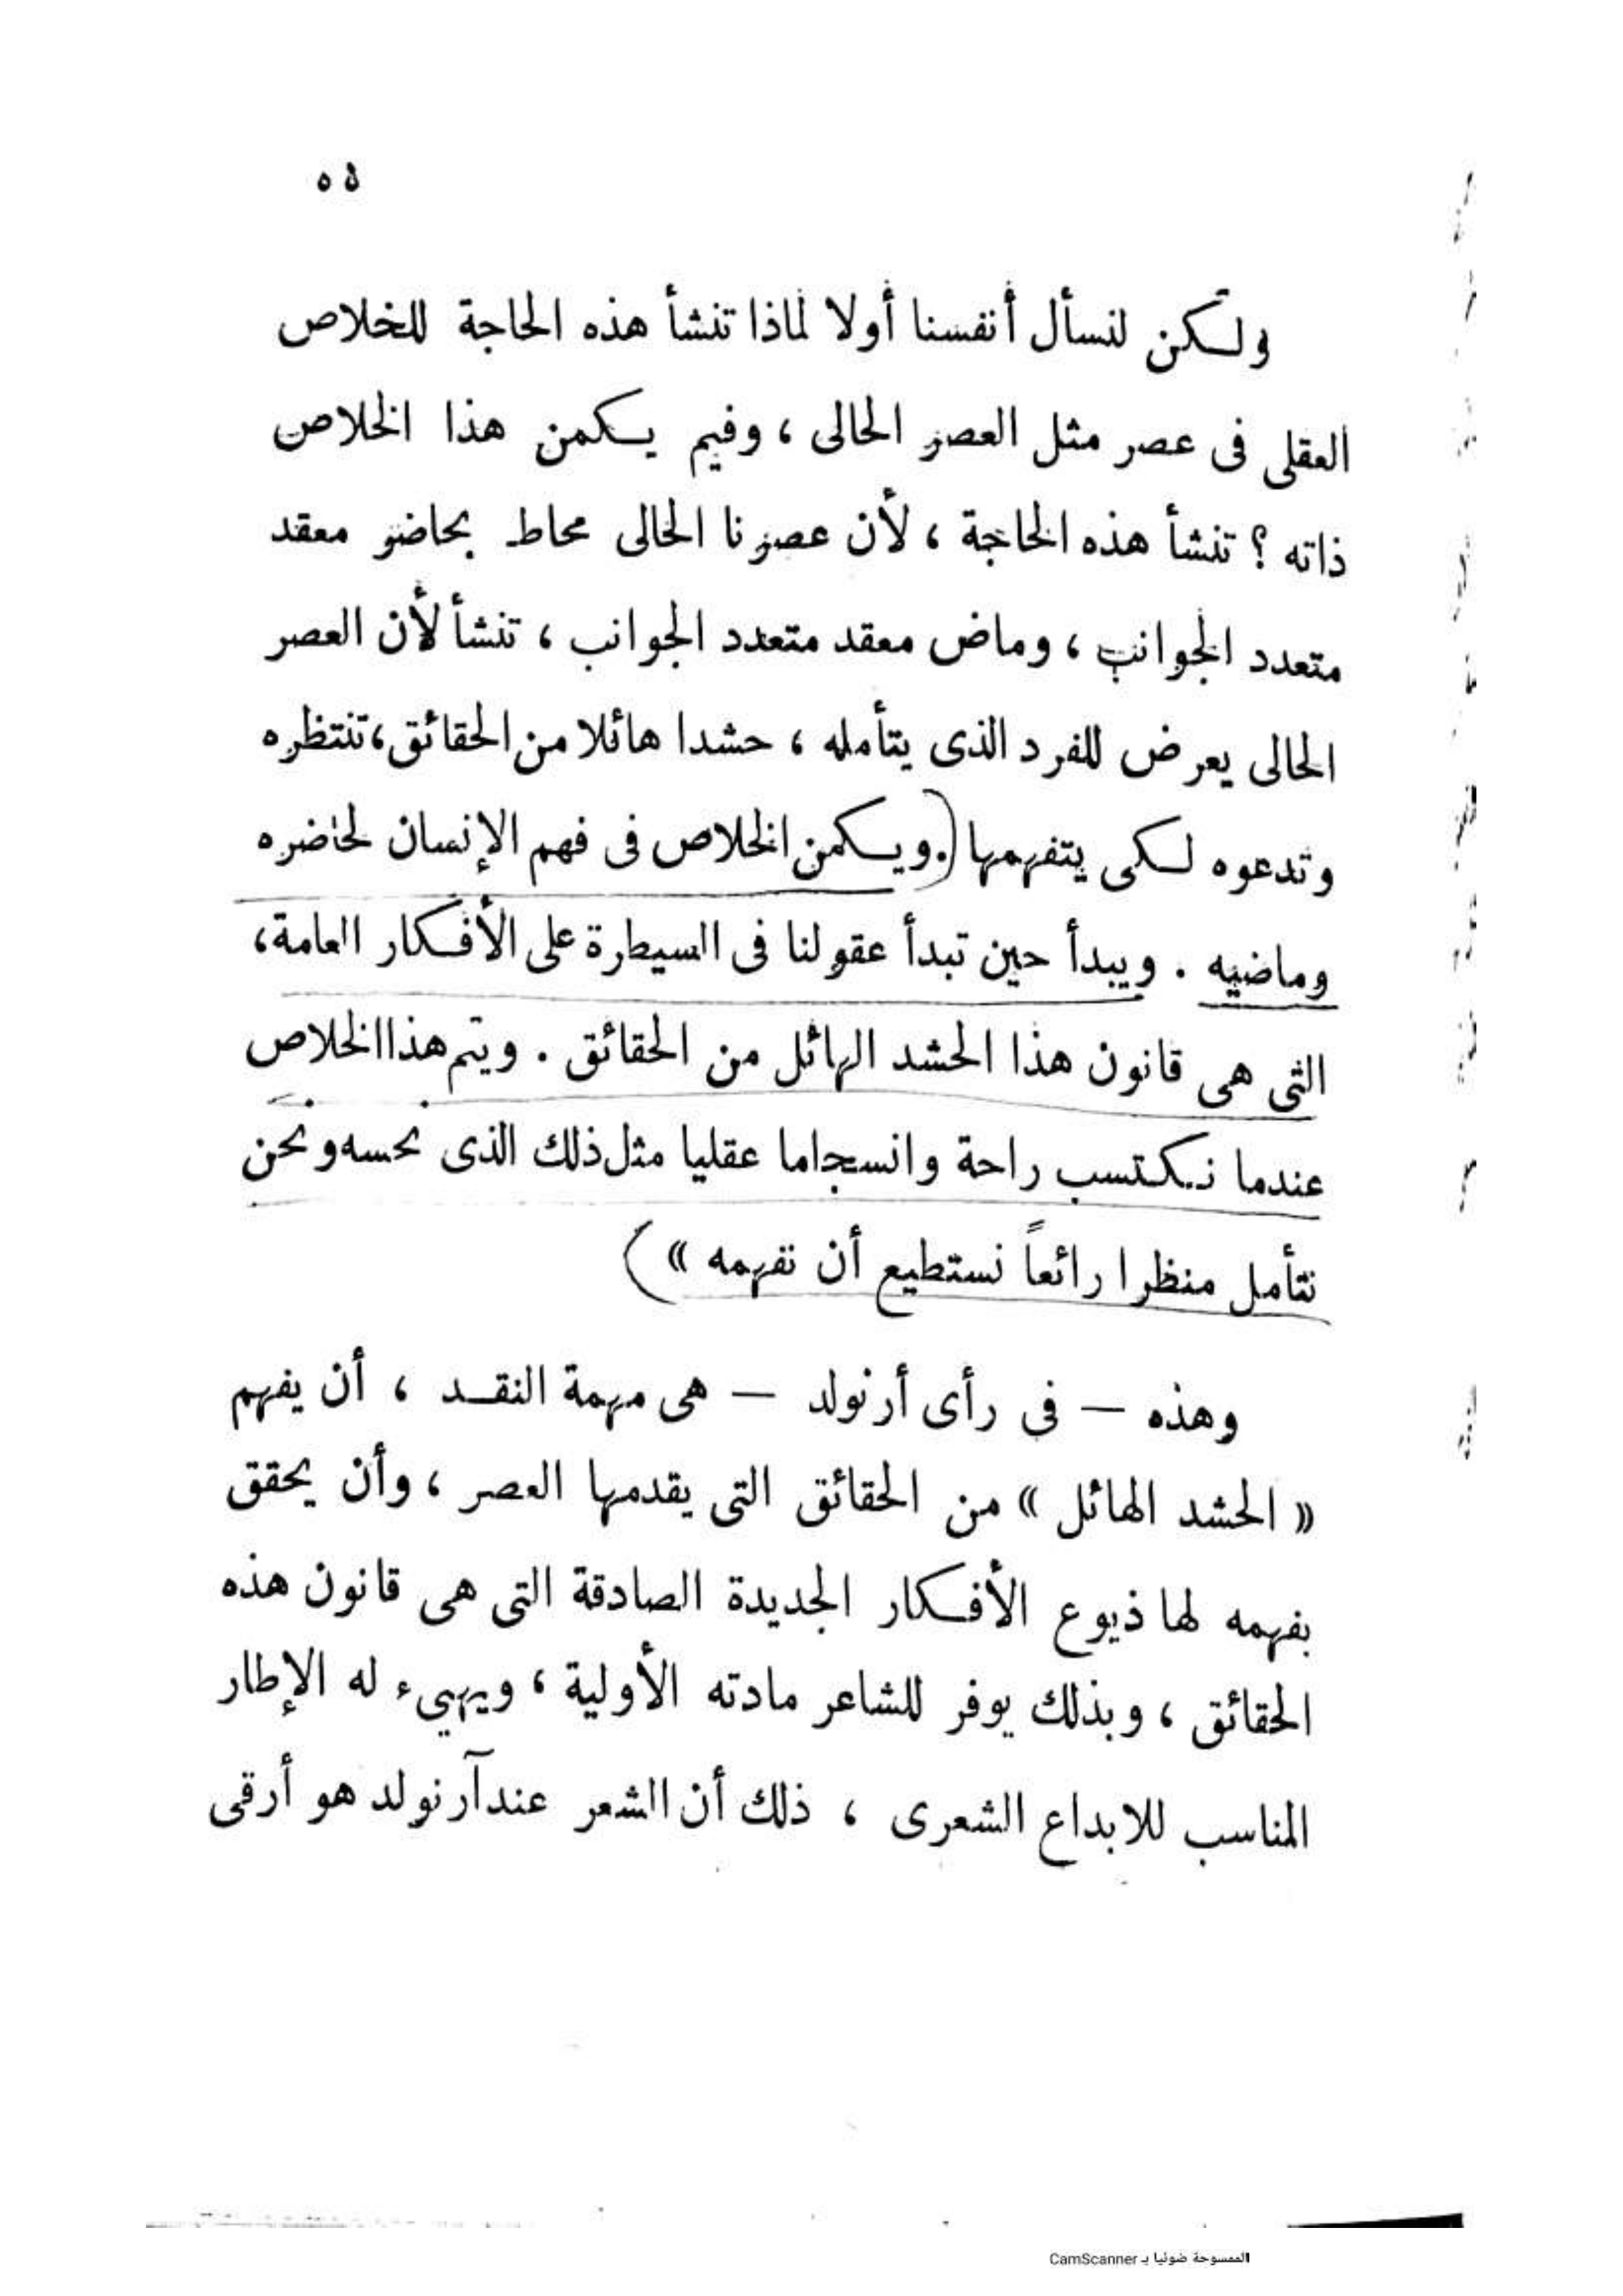 ٥٥
ولكن لنسأل أنفسنا أولا لماذا تنشأ هذه الحاجة للخلاص
العقلى فى عصر مثل العصر الحالى ، وفيم يكمن هذا الخلاص
ذاته ؟ تنشأ هذه الحاجة ، لأن عصرنا الحالى محاط بحاضر معقد
متعدد الجوانب ، وماض معقد متعدد الجوانب ، تنشأ لأن العصر
الحالى يعرض للفرد الذى يتأمله ، حشدا هائلا من الحقائق ، تنتظره
وتدعوه لكى يتفهمها (. ويكمن الخلاص فى فهم الإنسان لحاضره
وماضيه . ويبدأ حين تبدأ عقولنا فى السيطرة على الأفكار العامة ،
التى هى قانون هذا الحشد الهائل من الحقائق . ويتم هذا الخلاص
عندما نكتسب راحة وانسجاما عقليا مثل ذلك الذى نحسه ونحن
نتأمل منظرا رائعاً نستطيع أن نفهمه » )
وهذه — فى رأى أرنولد — هى مهمة النقد ، أن يفهم
« الحشد الهائل » من الحقائق التى يقدمها العصر ، وأن يحقق
بفهمه لها ذيوع الأفكار الجديدة الصادقة التى هى قانون هذه
الحقائق ، وبذلك يوفر للشاعر مادته الأولية ، ويهيىء له الإطار
المناسب للابداع الشعرى ، ذلك أن الشعر عند آرنولد هو أرقى
الممسوحة ضوئيا بـ CamScanner